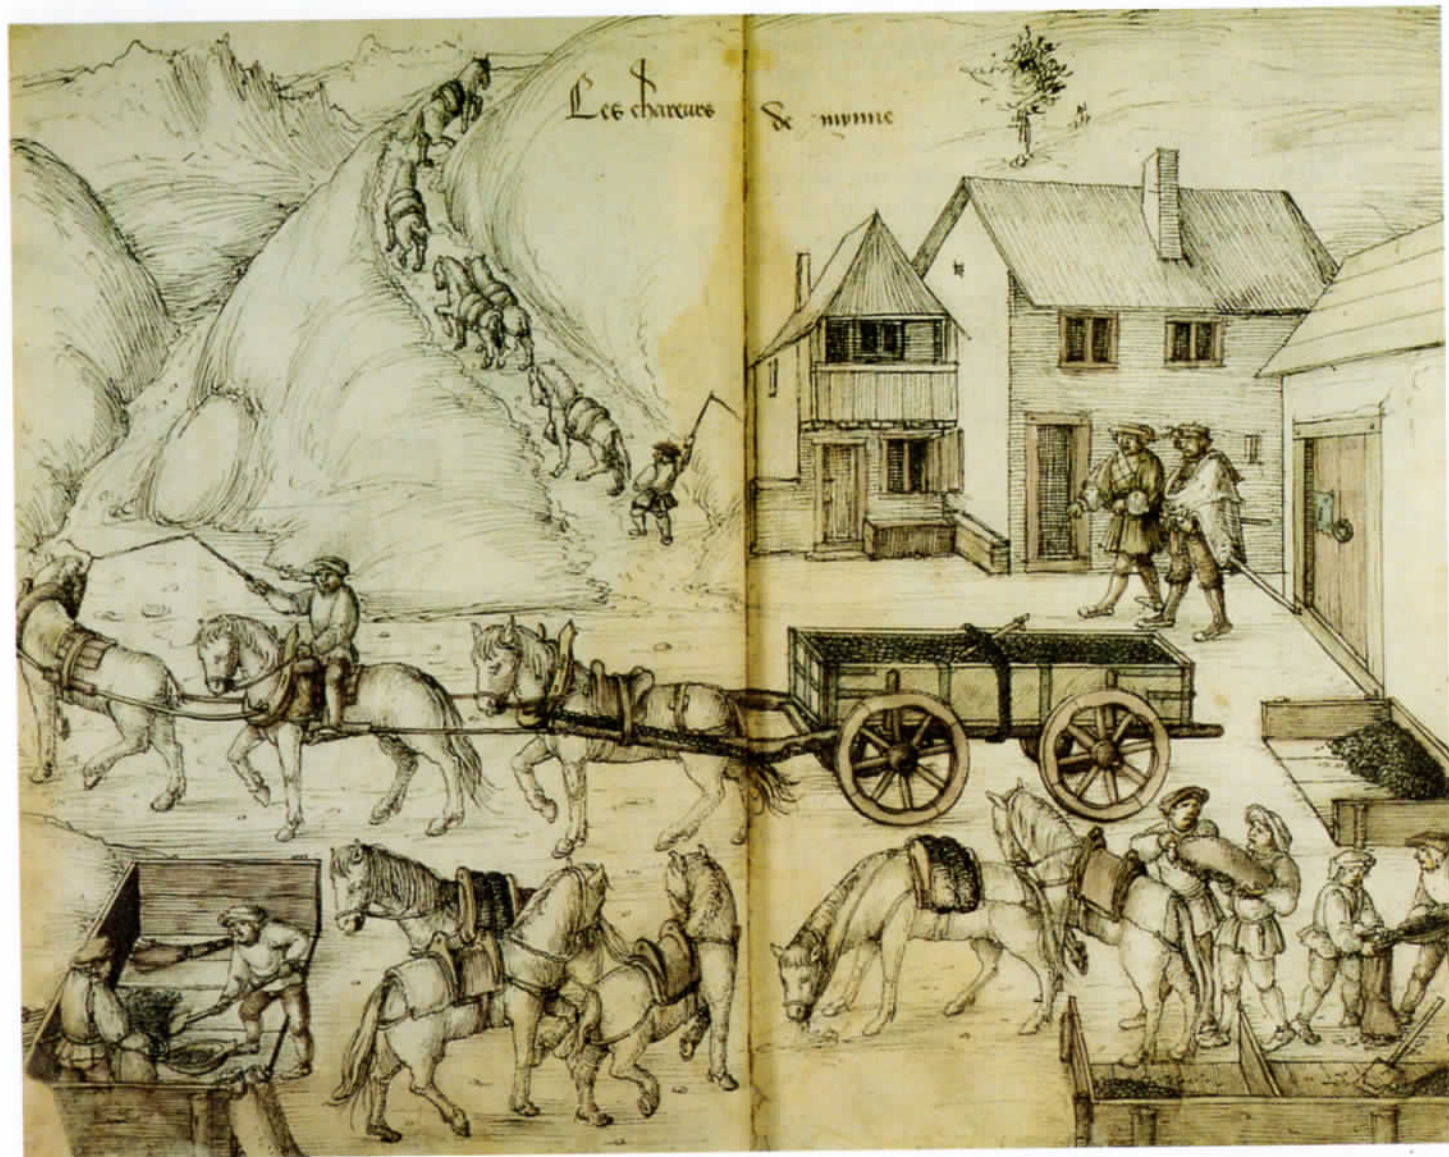 Les chareurs de mynne